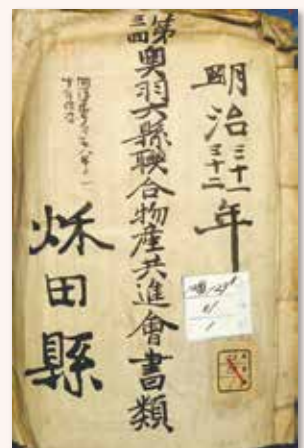 明治三十一三十二年
第三四奥羽六縣聯合物産共進會書類
秌田縣